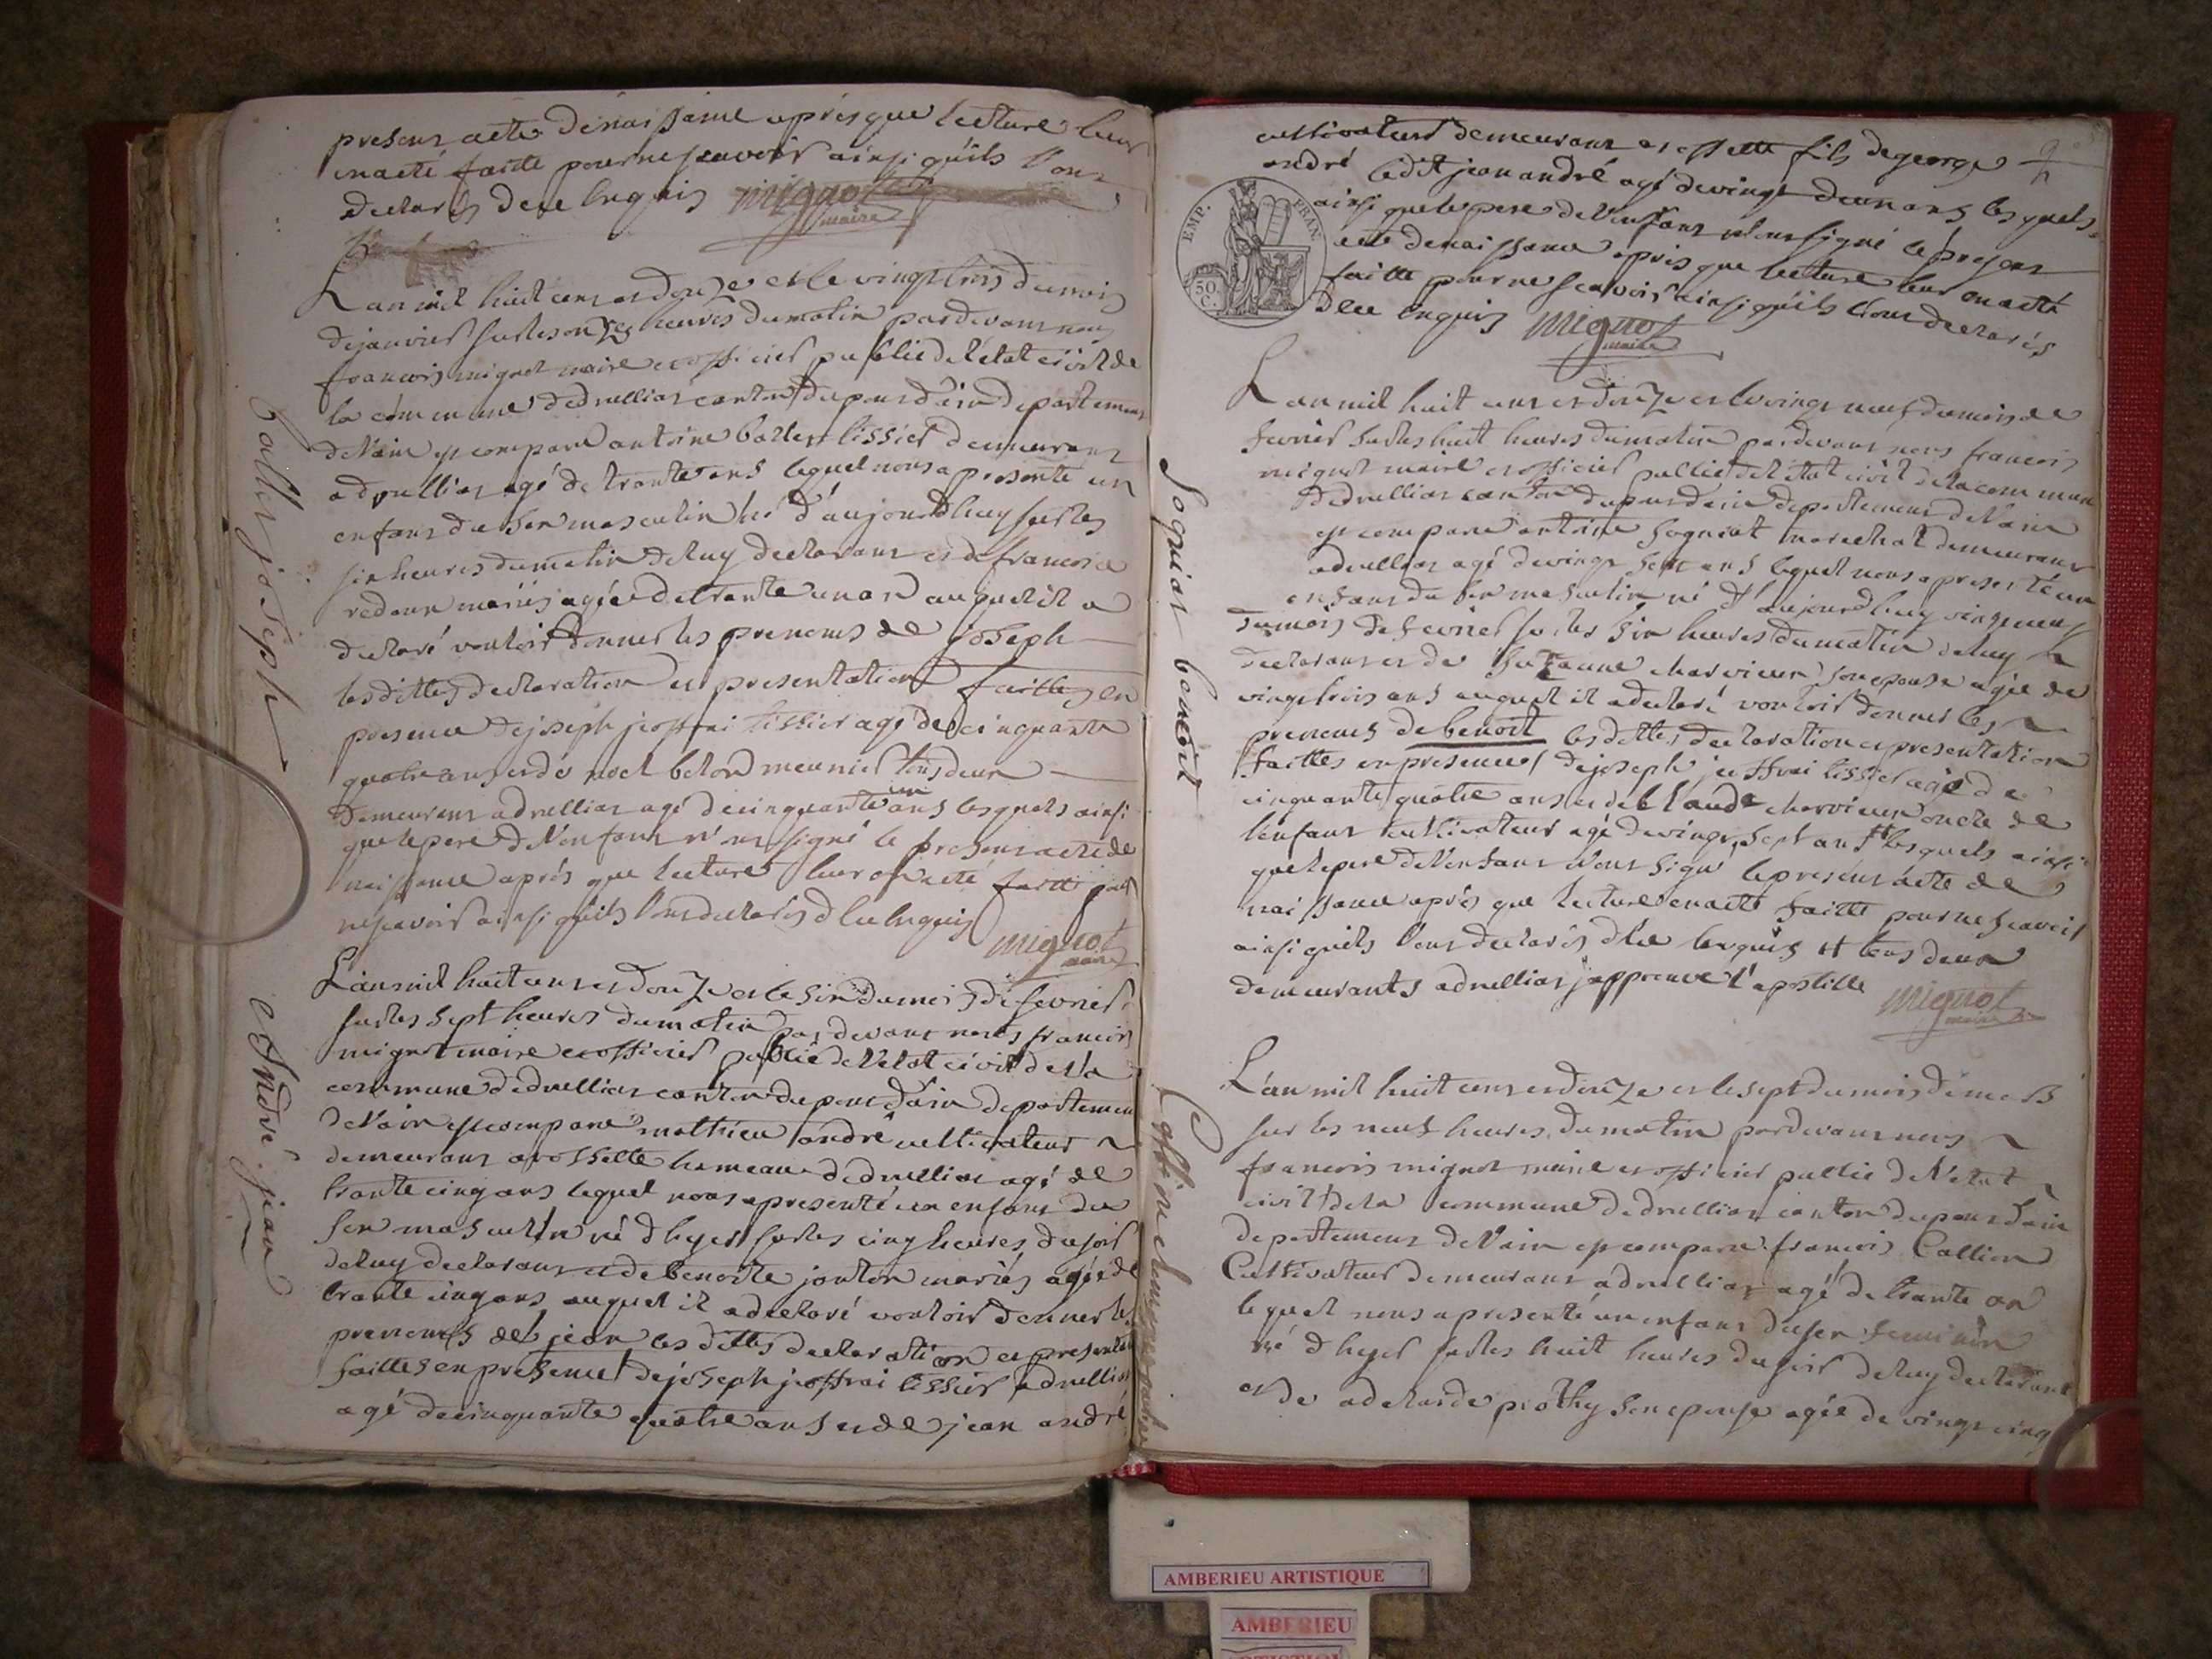 present acte de naissance apres que lecture leur
en a été faitte pour ne scavoir ainsi quils l'ont
declarés de ce enquis mignot
maire
L'an mil huit cent et douze et le vingt trois du mois
de janvier sur les onzes heures du matin pardevant nous
francois mignot maire et officier publie de l'etat civil de
la commune de druillias canton du pont d'ain departement
de l'ain est comparu antoine ballet tissier demeurant
a druillias agé de trante ans lequel nous a presenté un
enfant du sex masculin né d'aujourdhuy sur les
six heures du matin de luy declarant et de francoise
mariés agée de trante un an auquel il a
declaré vouloir donner les prenoms de joseph
lesdittes declaration et presentation faittes en
presence de joseph jeoffrai tissier agé de cinquante
quatre ans et de noel belon meunier tous deux
un
demeurent a druillias agé de cinquante ans lesquels ainsi
que le pere de l'enfant n'ont signé le present acte de
naissance aprés que lecture leur en a eté faitte pour
ne scavoir ainsi quils l'ont declarés de ce enquis
mignot
maire
ballet joseph
L'an mil huit cent et douze et le six du mois de fevrier
sur les sept heures du matin par devant nous francois
mignot maire et officier publie de l'etat civil de la
commune de druillias canton du pont d'ain departement
de l'ain est comparu mathieu andré cultivateur
demeurant a rossette hameau de druillias agé de
trante cinq ans lequel nous a presenté un enfant du
sex masculin né d'hyer sur les cinq heures du soir
de luy declarant et de benoite jonton mariés agée de
trante cinq ans auquel il a declaré vouloir donner les
prenoms de jean les dittes declaration et presentation
faittes en presence de joseph jeoffrai tissier a druillias
agé de cinquante quatre ans et de jean andre
André jean
cultivateur demeurant a rossette fils de george
andré ledit jean andré agé de vingt deux ans lesquels
ainsi que le pere de l'enfant n'ont signé le present
acte de naissance apris que lecture leur en a eté
faitte pour ne scavoir ainsi quils l'ont declarés
d'ce enquis mignot
maire
EMP. FRAN.
50 C.
L'an mil huit cent et douze et le vingt neuf du mois de
fevrier sur les huit heures du matin pardevant nous francois
mignot maire et officier publie de l'etat civil de la commune
de druillias canton du pont d'ain departement de l'ain
est comparu antoine sogniat marechal demeurant
a druillias agé de vingt sept ans lequel nous a presenté un
enfant du sex masculin né d'aujourdhuy vingt neuf
du mois de fevrier sur les six heures du matin de luy
declarant et de suzanne charvieux son epouse agée de
vingt trois ans auquel il a declaré vouloir donner les
prenoms de benoit lesdittes declaration et presentation
faittes en presence de joseph jeoffrai tissier agé de
cinquante quatre ans et de claude charvieux oncle de
l'enfant cultivateur agé de vingt sept ans # lesquels ainsi
que le pere de l'enfant n'ont signé le present acte de
naissance aprés que lecture en a eté faitte pour ne scavoir
ainsi quils l'ont declarés d'ce enquis # tous deux
demeurants a druillias japprouve l'apostille
mignot
maire
sogniat benoit
L'an mil huit cent et douze et le sept du mois de mars
sur les neuf heures du matin pardevant nous
francois mignot maire et officier publie de l'etat
civil de la commune de druillias canton du pont d'ain
departement de l'ain est comparu francois Collion
Cultivateur demeurant a druillias agé de trante an
lequel nous a presenté un enfant du sex feminin
né d'hyer sur les huit heures du soir de luy declarant
et de adelaide piothy son epouse agée de vingt cinq
AMBERIEU ARTISTIQUE
AMBERIEU